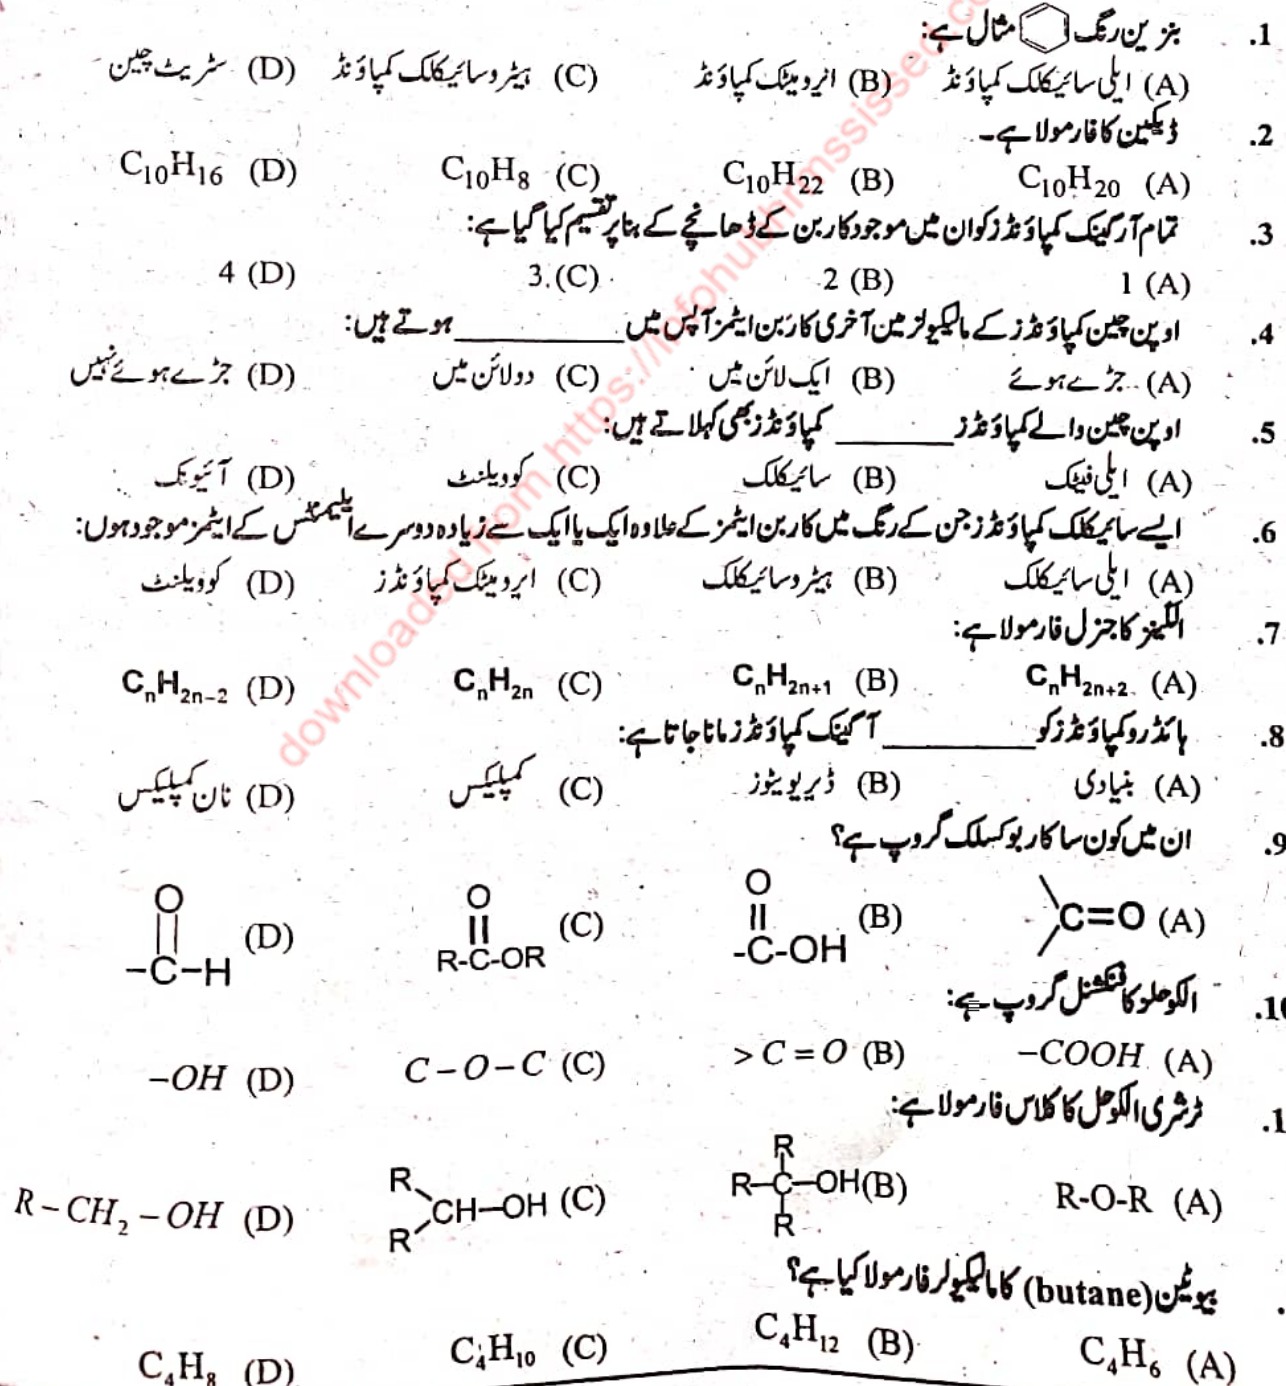 1. بنزین رنگ مثال ہے:
(A) ایلی سائیکلک کمپاؤنڈ (B) ائرومیٹک کمپاؤنڈ (C) ہیٹروسائیکلک کمپاؤنڈ (D) سٹریٹ چین
2. ڈیکین کا فارمولا ہے۔
(A) C₁₀H₂₀ (B) C₁₀H₂₂ (C) C₁₀H₈ (D) C₁₀H₁₆
3. تمام آرگینک کمپاؤنڈز کو ان میں موجود کاربن کے ڈھانچے کے بنا پر تقسیم کیا گیا ہے:
(A) 1 (B) 2 (C) 3 (D) 4
4. اوپن چین کمپاؤنڈز کے مالیکیولز میں آخری کاربن ایٹمز آپس میں ________ ہوتے ہیں:
(A) جڑے ہوئے (B) ایک لائن میں (C) دو لائن میں (D) جڑے ہوئے نہیں
5. اوپن چین والے کمپاؤنڈز ________ کمپاؤنڈز بھی کہلاتے ہیں:
(A) ایلی فیٹک (B) سائیکلک (C) کوویلنٹ (D) آئیونک
6. ایسے سائیکلک کمپاؤنڈز جن کے رنگ میں کاربن ایٹمز کے علاوہ ایک یا ایک سے زیادہ دوسرے ایلیمنٹس کے ایٹمز موجود ہوں:
(A) ایلی سائیکلک (B) ہیٹروسائیکلک (C) ایرومیٹک کمپاؤنڈز (D) کوویلنٹ
7. الکینز کا جنرل فارمولا ہے:
(A) CₙH₂ₙ₊₂ (B) CₙH₂ₙ₊₁ (C) CₙH₂ₙ (D) CₙH₂ₙ₋₂
8. ہائڈروکمپاؤنڈز کو ________ آگینک کمپاؤنڈز مانا جاتا ہے:
(A) بنیادی (B) ڈیریویٹوز (C) کمپلیکس (D) نان کمپلیکس
9. ان میں کون سا کاربوکسلک گروپ ہے؟
(A) >C=O (B) -C(=O)-OH (C) R-C(=O)-OR (D) -C(=O)-H
10. الکوحلز کا فنکشنل گروپ ہے:
(A) -COOH (B) >C=O (C) C-O-C (D) -OH
1. ٹرشری الکوحل کا کلاس فارمولا ہے:
(A) R-O-R (B) R-C(R)(R)-OH (C) R R CH-OH (D) R-CH₂-OH
. بیوٹین (butane) کا مالیکیولر فارمولا کیا ہے؟
(A) C₄H₆ (B) C₄H₁₂ (C) C₄H₁₀ (D) C₄H₈